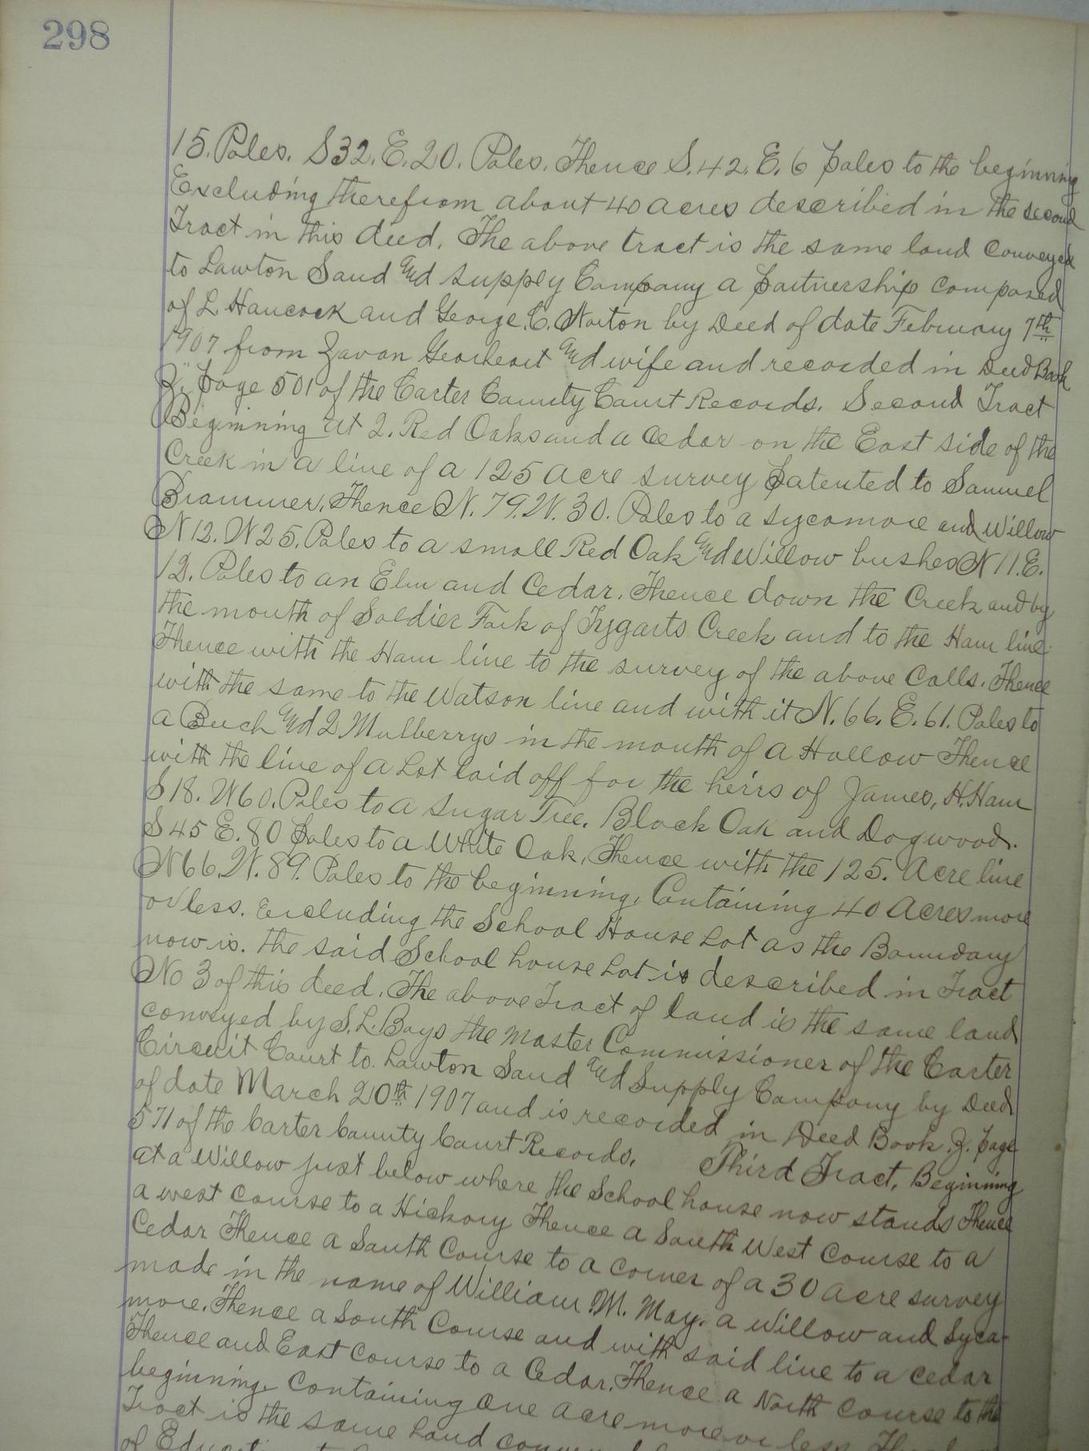 298
15. Poles. S32. E. 20. Poles. Thence S. 42. E. 6 poles to the beginning
Excluding therefrom about 40 acres described in the second
Tract in this deed. The above tract is the same land conveyed
to Lawton Sand and Supply Company a partnership composed
of L Hancock and George. C. Norton by Deed of date February 7th
1907 from Zavan Gearheart and wife and recorded in Deed Book
Z, page 501 of the Carter County Court Records. Second Tract
Beginning at 2. Red Oaks and a Cedar on the East side of the
Creek in a line of a 125 acre survey patented to Samuel
Brammer, Thence N. 79. W. 30. Poles to a sycamore and Willow
N12. W25. Poles to a small Red Oak and Willow bushes N11. E.
12. Poles to an Elm and Cedar. Thence down the Creek and by
the mouth of Soldier Fork of Tygarts Creek and to the Ham line
Thence with the Ham line to the survey of the above Calls. Thence
with the same to the Watson line and with it N. 66. E. 61. Poles to
a Buch and 2 Mulberrys in the mouth of a Hollow Thence
with the line of a Lot laid off for the heirs of James, H. Ham
S18. W60. Poles to a Sugar Tree. Black Oak and Dogwood.
S45 E. 80 Poles to a White Oak, Thence with the 125. Acre line
N66. W. 89. Poles to the beginning, Containing 40 Acres more
or less. Excluding the School House Lot as the Boundary
now is. the said School house Lot is described in Tract
No 3 of this deed. The above Tract of land is the same land
conveyed by S. L. Bays the Master Commissioner of the Carter
Circuit Court to Lawton Sand and Supply Company by Deed
of date March 20th 1907 and is recorded in Deed Book Z. page
571 of the Carter County Court Records. Third Tract, Beginning
at a Willow just below where the School house now stands Thence
a west course to a Hickory Thence a South West Course to a
Cedar Thence a South Course to a corner of a 30 acre survey
made in the name of William M. May. a Willow and Syca-
more. Thence a South Course and with said line to a cedar
Thence and East course to a Cedar. Thence a North Course to the
beginning. Containing One acre more or less.
Tract is the same land
of